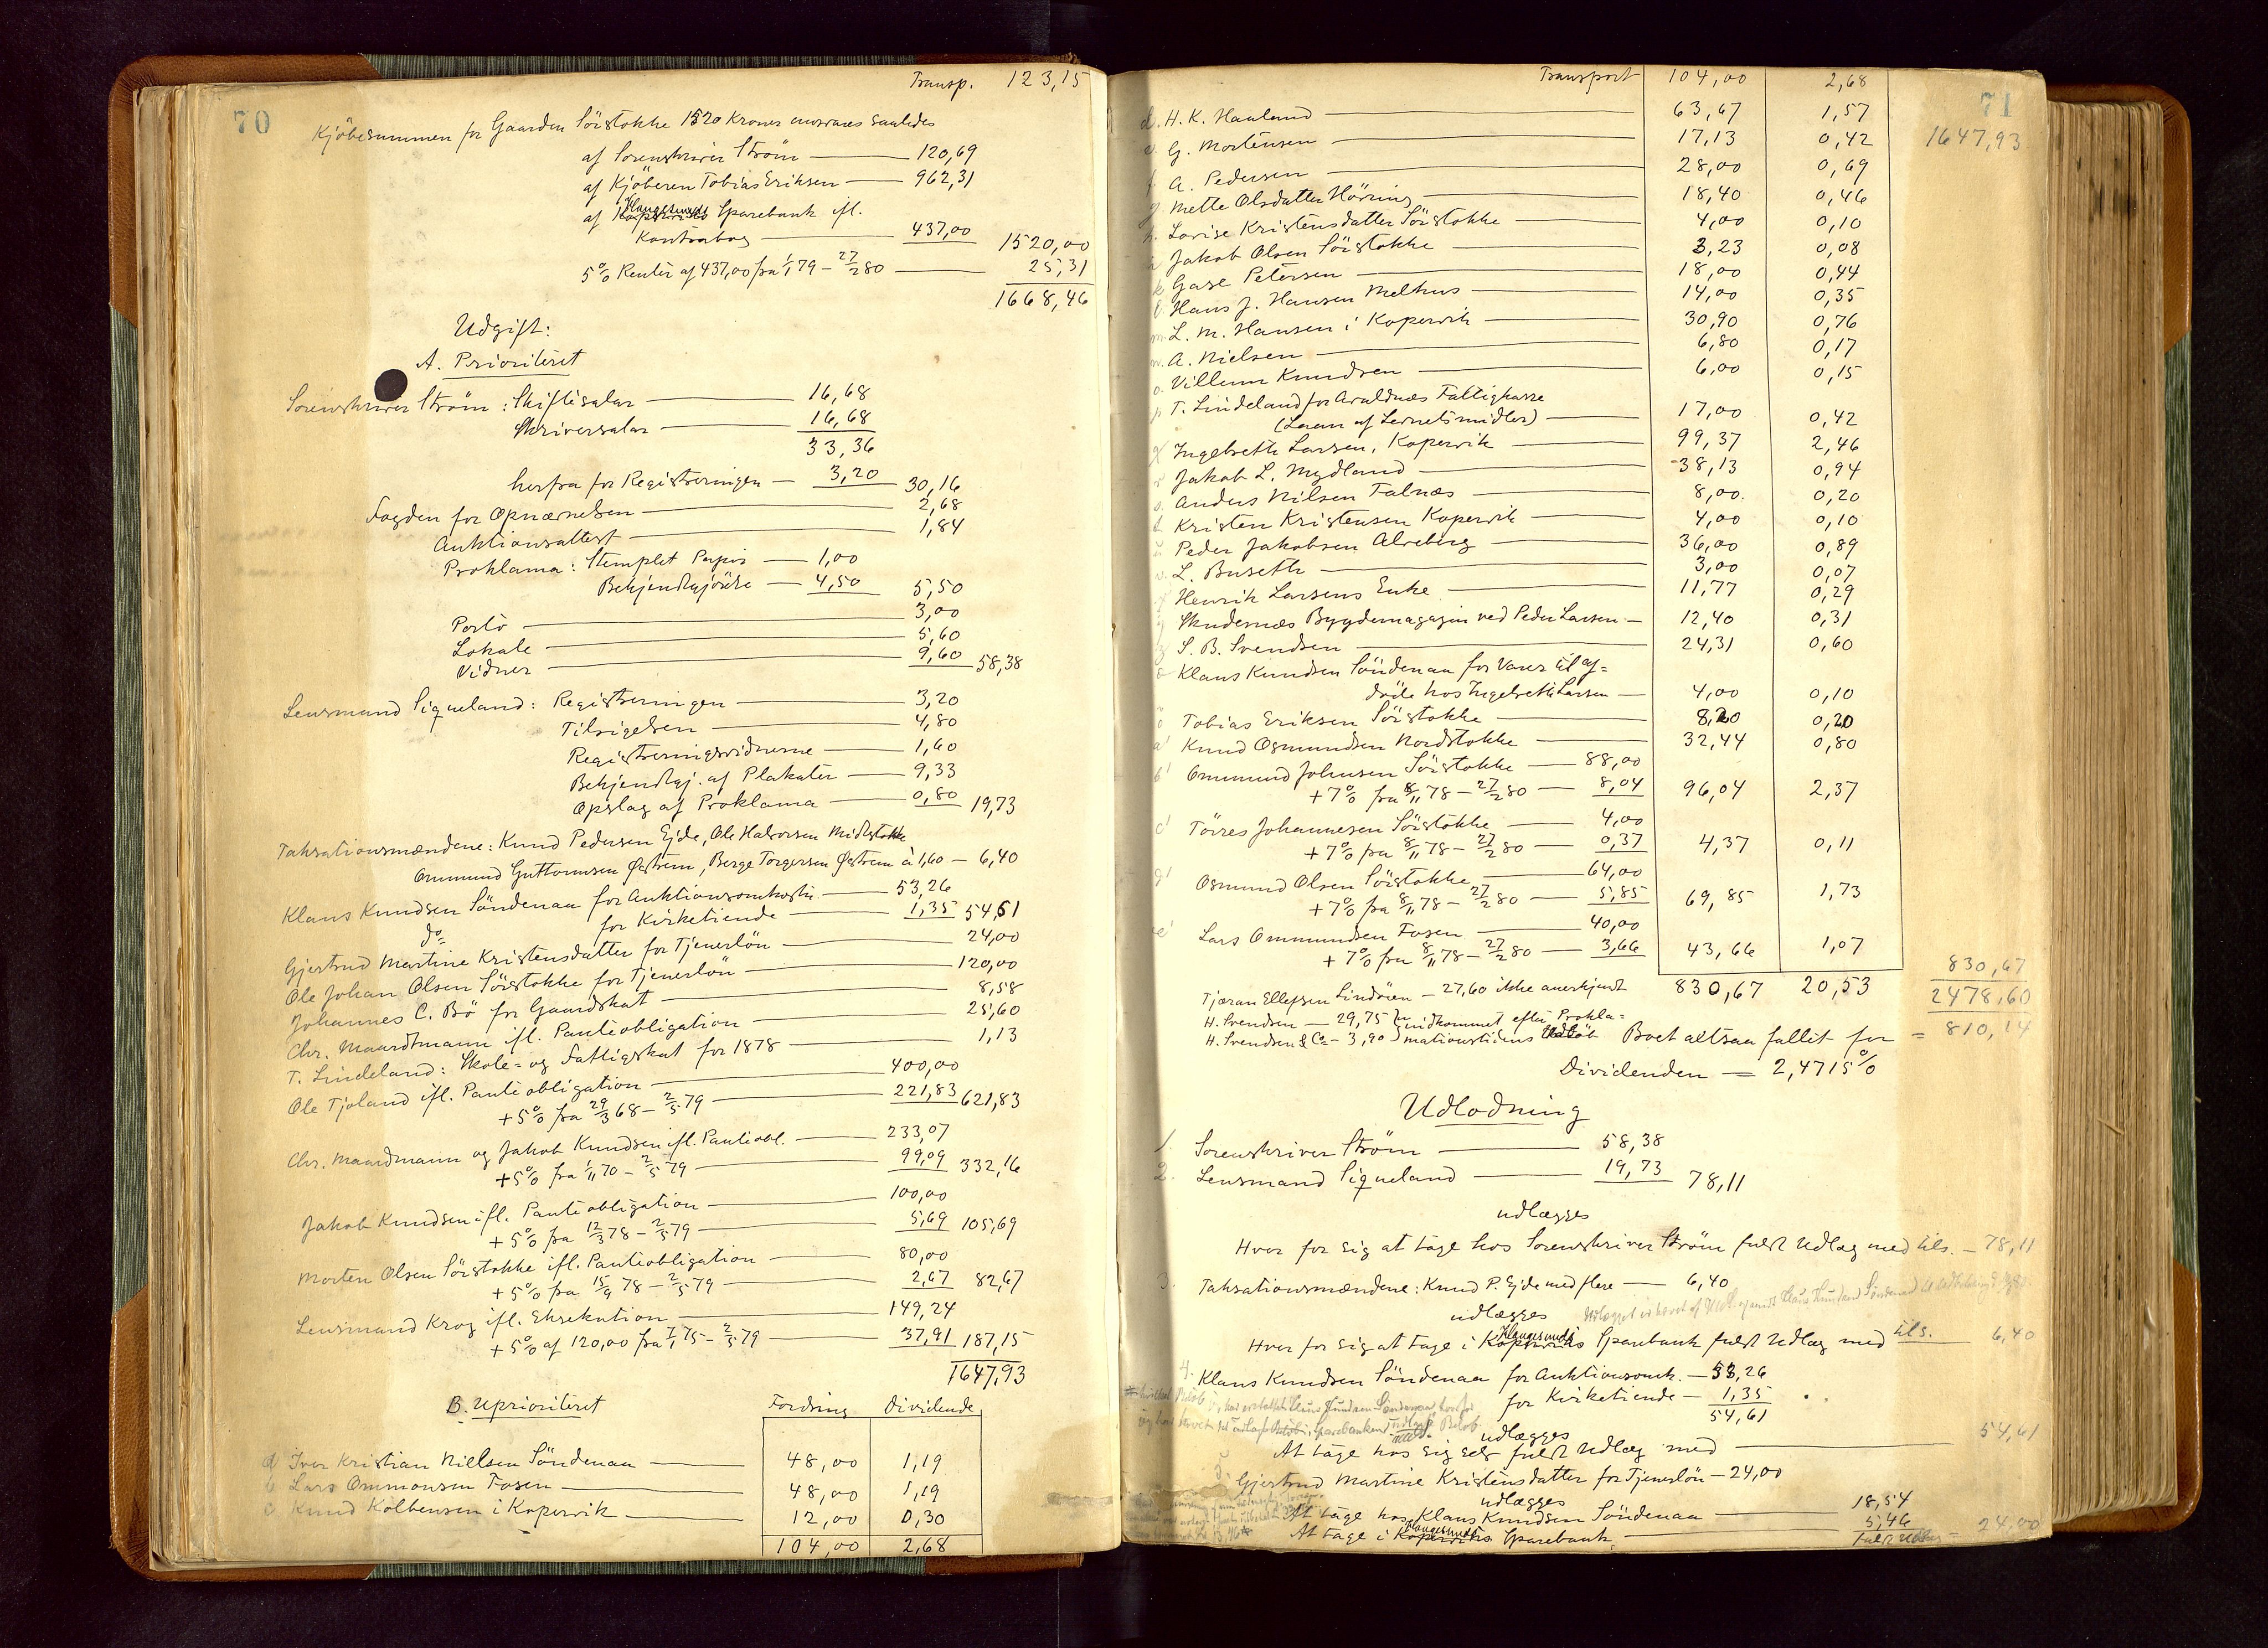 Transp. 123,15
70
Kjöbesummen for Gaarden Sörstokke 1520 Kroner ansvares saaledes
af Sorenskriver Ström 120,69
af Kjöberen Tobias Eriksen 962,31
af Haugesunds Sparebank ifl.
Kontrabog 437,00 1520,00
5% Renter af 437,00 fra 1/1 79 – 27/2 80 25,31
1668,46
Udgift:
A. Prioriteret
Sorenskriver Ström: Skiftesalar 16,68
Skriversalar 16,68
33,36
herfra for Registreringen 3,20 30,16
Fogden for Opnævnelsen 2,68
Auktionsattest 1,84
Proklama: Stemplet Papir 1,00
Bekjendtgjörelse 4,50 5,50
Porto 3,00
Lokale 5,60
Vidner 9,60 58,38
Lensmand Siqveland: Registreringen 3,20
Tilsigelsen 4,80
Registreringsvidnerne 1,60
Bekjendtgj. af Plakater 9,33
Opslag af Proklama 0,80 19,73
Taksationsmændene: Knud Pedersen Ejde, Ole Halvorsen Midtstokke
Ommund Guttormsen Östrem, Berge Torgersen Östrem à 1,60 – 6,40
Klaus Knudsen Söndenaa for Auktionsomkostn. 53,26
do for Kirketiende 1,35 54,61
Gjertrud Martine Kristensdatter for Tjenerlön 24,00
Ole Johan Olsen Sörstokke for Tjenerlön 120,00
Johannes C. Bö for Gaardskat 8,58
Chr. Maardtmann ifl. Panteobligation 25,60
T. Lindeland: Skole- og Fattigskat for 1878 1,13
Ole Tjoland ifl. Panteobligation 400,00
+ 5% fra 29/3 68 – 2/5 79 221,83 621,83
Chr. Maardmann og Jakob Knudsen ifl. Panteobl. 233,07
+ 5% fra 1/11 70 – 2/5 79 99,09 332,16
Jakob Knudsen ifl. Panteobligation 100,00
+ 5% fra 12/3 78 – 2/5 79 5,69 105,69
Morten Olsen Sörstokke ifl. Panteobligation 80,00
+ 5% fra 15/9 78 – 2/5 79 2,67 82,67
Lensmand Krog ifl. Eksekution 149,24
+ 5% af 120,00 fra 1/1 75 – 2/5 79 37,91 187,15
1647,93
B. Uprioriteret Fordring Dividende
a Iver Kristian Nielsen Söndenaa 48,00 1,19
b Lars Ommonsen Fosen 48,00 1,19
c Knud Kolbensen i Kopervik 12,00 0,30
104,00 2,68
Transport 104,00 2,68
71
d. H. K. Haaland 63,67 1,57
1647,93
e. G. Mortensen 17,13 0,42
f. A. Pedersen 28,00 0,69
g. Mette Olsdatter Hörring 18,40 0,46
h. Lovise Kristensdatter Sörstokke 4,00 0,10
i Jakob Olsen Sörstokke 3,23 0,08
k Gase Petersen 18,00 0,44
l. Hans J. Hansen Melhus 14,00 0,35
m. L. M. Hansen i Kopervik 30,90 0,76
n. A. Nielsen 6,80 0,17
o. Villum Knudsen 6,00 0,15
p T. Lindeland for Avaldsnæs Fattigkasse
(Laan af Levnetsmidler) 17,00 0,42
q Ingebreth Larsen, Kopervik 99,37 2,46
r Jakob L. Mydland 38,13 0,94
s. Anders Nilsen Falnæs 8,00 0,20
t. Kristen Kristensen Kopervik 4,00 0,10
u Peder Jakobsen Alreberg 36,00 0,89
v. L. Buseth 3,00 0,07
x Henrik Larsens Enke 11,77 0,29
y Skudesnæs Bygdemagazin ved Peder Larsen 12,40 0,31
z S. B. Svendsen 24,31 0,60
Klaus Knudsen Söndenaa for Varer til af=
döde hos Ingebreth Larsen 4,00 0,10
ö Tobias Eriksen Sörstokke 8,20 0,20
a' Knud Osmundsen Nordstokke 32,44 0,80
b' Ommund Johnsen Sörstokke 88,00
+ 7% fra 8/11 78 – 27/2 80 8,04 96,04 2,37
c' Törres Johannesen Sörstokke 4,00
+ 7% fra 8/11 78 – 27/2 80 0,37 4,37 0,11
d' Osmund Olsen Sörstokke 64,00
+ 7% fra 8/11 78 – 27/2 80 5,85 69,85 1,73
e' Lars Ommundsen Fosen 40,00
+ 7% fra 8/11 78 – 27/2 80 3,66 43,66 1,07
830,67
Tjæran Ellefsen Lindöen – 27,60 ikke anerkjendt 830,67 20,53
2478,60
H. Svendsen – 29,75 } indkommet efter Prokla=
H. Svendsen & Co – 3,90 } mationstidens Udlöb Boet altsaa fallit for = 810,14
Dividenden = 2,4715%
Udlodning
1. Sorenskriver Ström 58,38
2. Lensmand Siqveland 19,73 78,11
udlægges
Hver for sig at tage hos Sorenskriver Ström fuldt Udlæg med tils. – 78,11
3. Taksationsmændene: Knud P. Ejde med flere 6,40
udlægges
Hver for sig at tage i Haugesunds Sparebank fuldt Udlæg med tils. 6,40
4. Klaus Knudsen Söndenaa for Auktionsomk. – 53,26
for Kirketiende – 1,35
54,61
udlægges
At tage hos sig selv fuldt Udlæg med 54,61
5 Gjertrud Martine Kristensdatter for Tjenerlön – 24,00
udlægges
At tage hos Klaus Knudsen Söndenaa 18,54
At tage i Haugesunds Sparebank 5,46
fuldt Udlæg 24,00